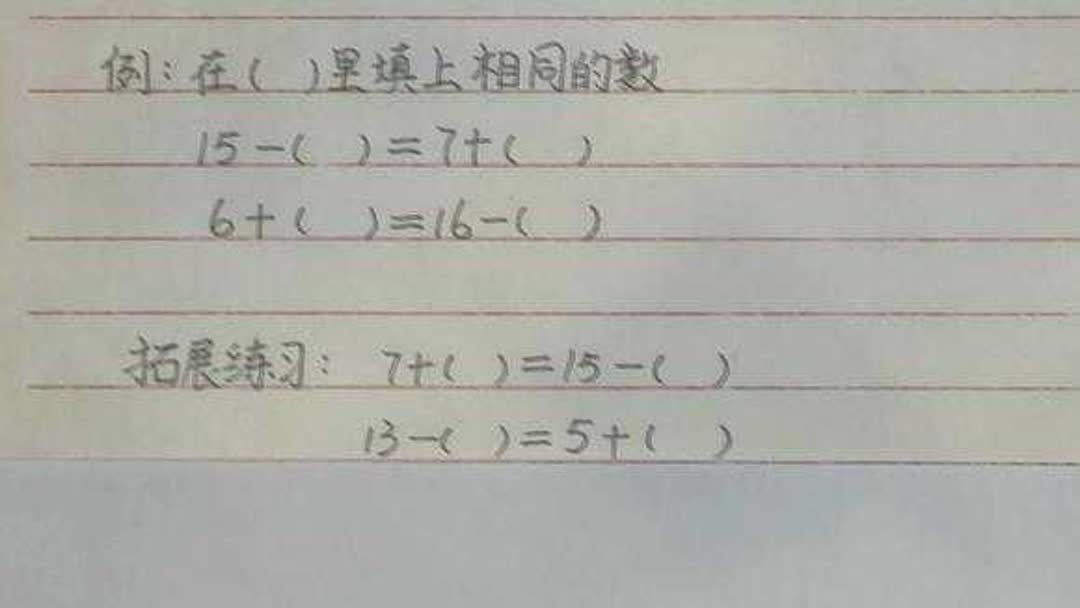 例:在( )里填上相同的数
15-( )=7+( )
6+( )=16-( )
拓展练习: 7+( )=15-( )
13-( )=5+( )